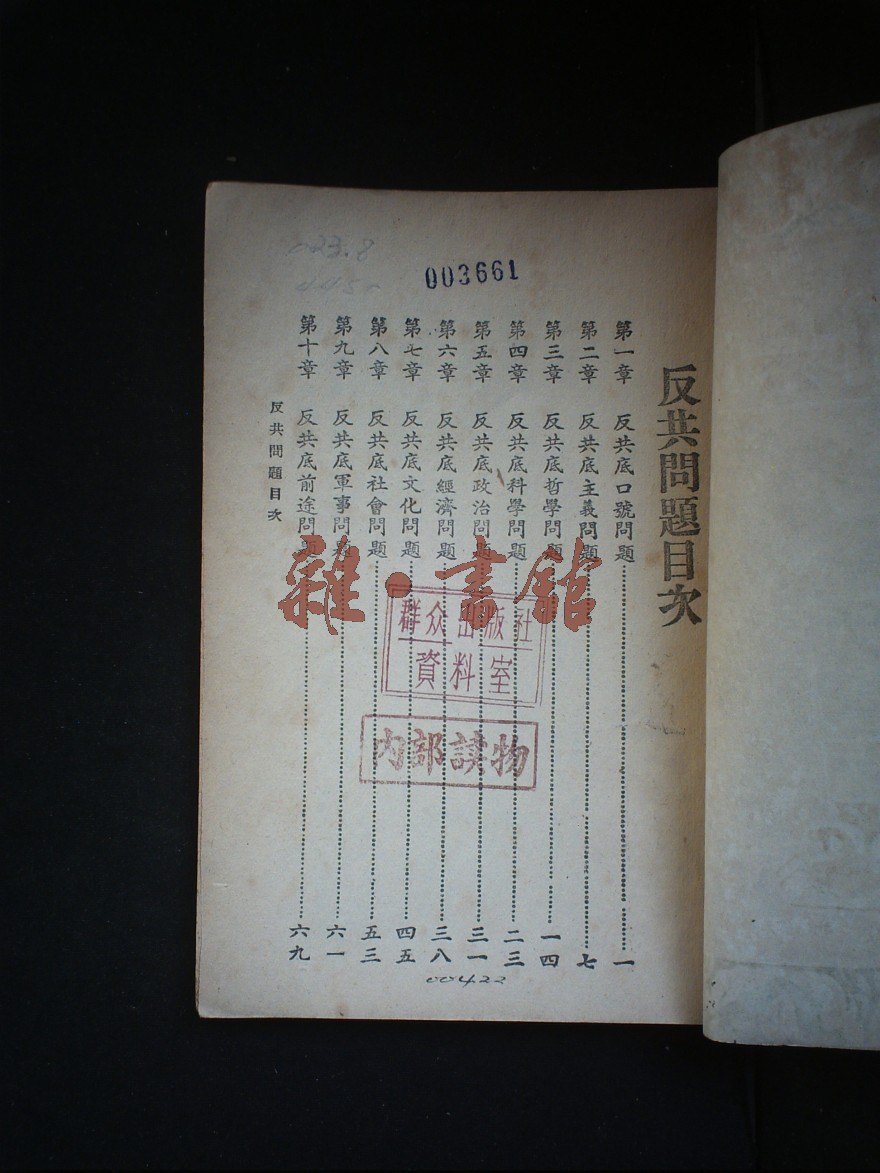 反共問題目次
第一章 反共底口號問題……一
第二章 反共底主義問題……七
第三章 反共底哲學問題……一四
第四章 反共底科學問題……二三
第五章 反共底政治問題……三一
第六章 反共底經濟問題……三八
第七章 反共底文化問題……四五
第八章 反共底社會問題……五三
第九章 反共底軍事問題……六一
第十章 反共底前途問題……六九
反共問題目次
003661
23.8
雜·書館
群众出版社
資料室
内部読物
00422